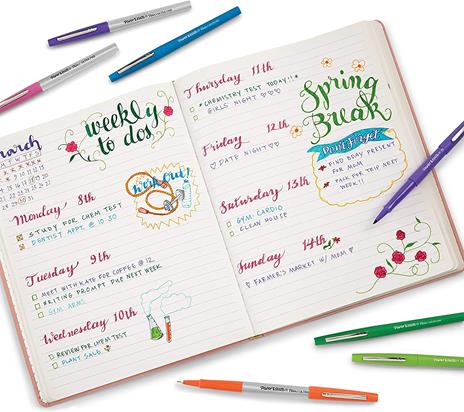 Paper Mate
Paper Mate
Paper Mate
Paper Mate
march
weekly
to dos
Monday 8th
STUDY FOR CHEM TEST
DENTIST APPT. @ 10:30
work out!
Tuesday 9th
MEET WITH KATE FOR COFFEE @ 12
WRITING PROMPT DUE NEXT WEEK
GYM ARMS
Wednesday 10th
REVIEW FOR CHEM TEST
PLANT SALE
Thursday 11th
*CHEMISTRY TEST TODAY!!*
GIRLS NIGHT ♡♡♡
Friday 12th
♡ DATE NIGHT ♡
Saturday 13th
GYM CARDIO
CLEAN HOUSE
Sunday 14th
♡ FARMER'S MARKET W/ MOM ♡
Spring
Break
Don't Forget
FIND BDAY PRESENT
FOR MOM
PACK FOR TRIP NEXT
WEEK!!
Paper Mate
Paper Mate
Paper Mate
Paper Mate